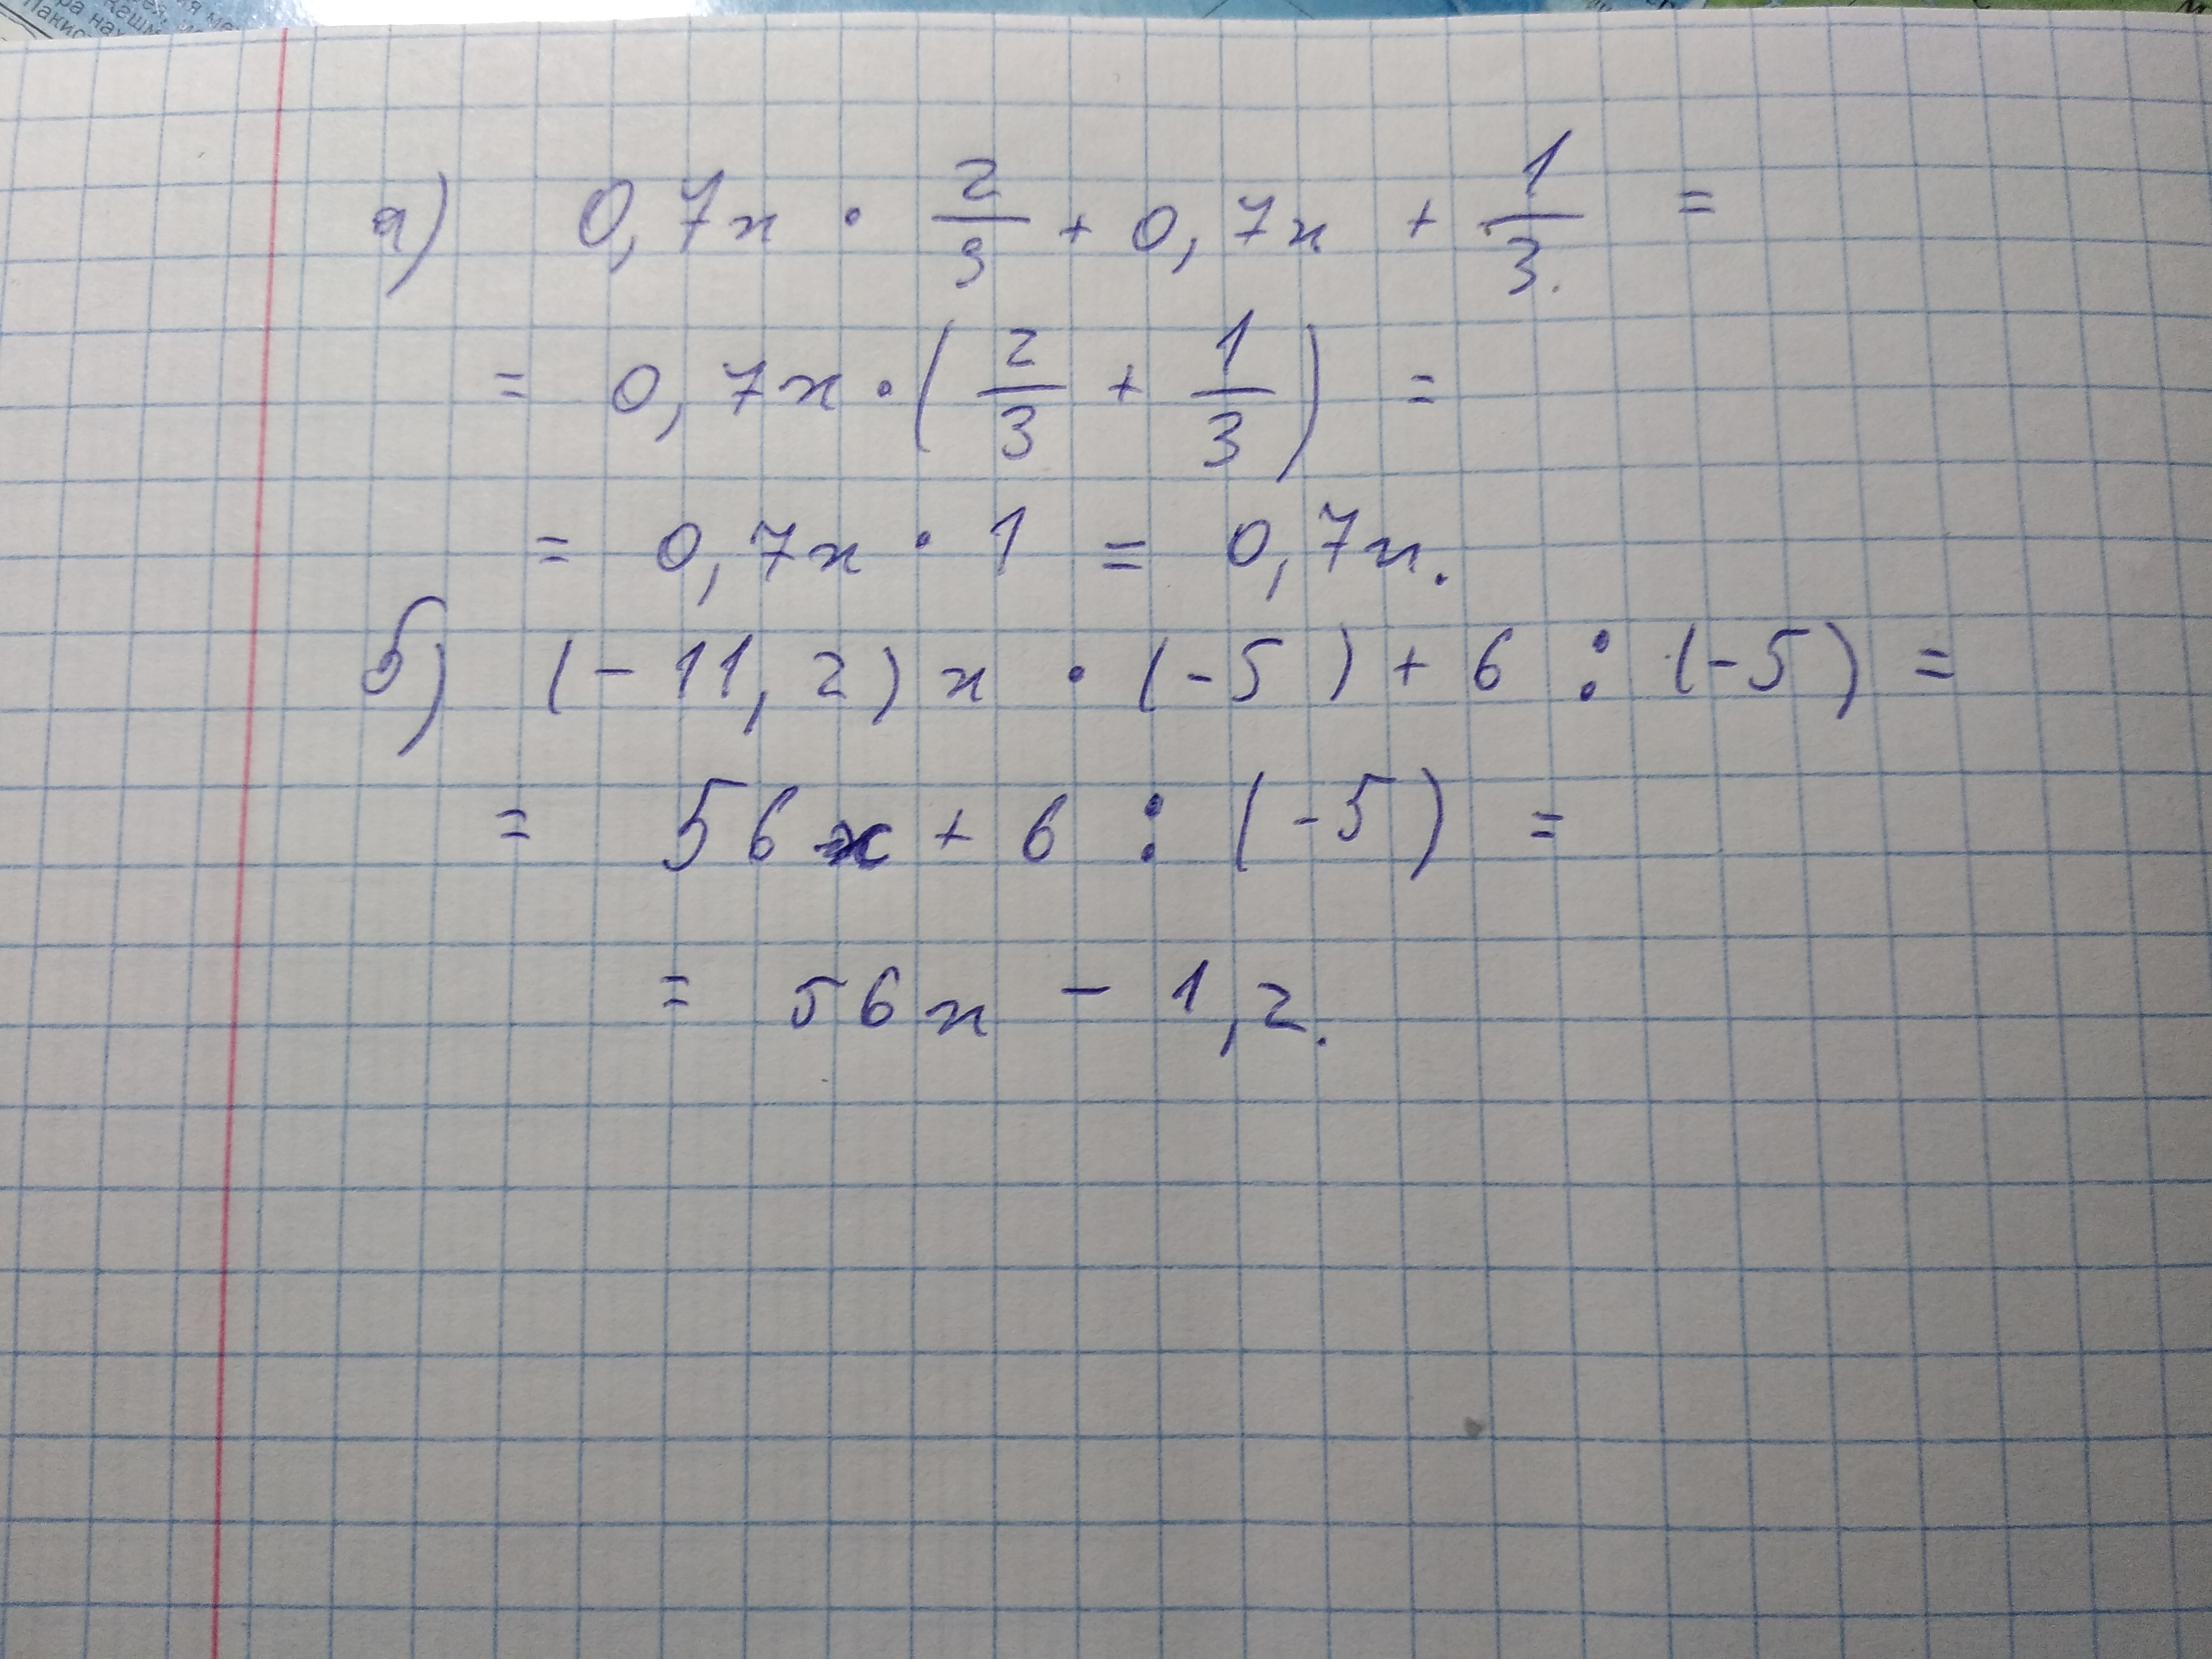 а) 0,7x · 2/3 + 0,7x + 1/3. =
= 0,7x · (2/3 + 1/3) =
= 0,7x · 1 = 0,7x.
б) (-11,2)x · (-5) + 6 : (-5) =
= 56x + 6 : (-5) =
= 56x - 1,2.